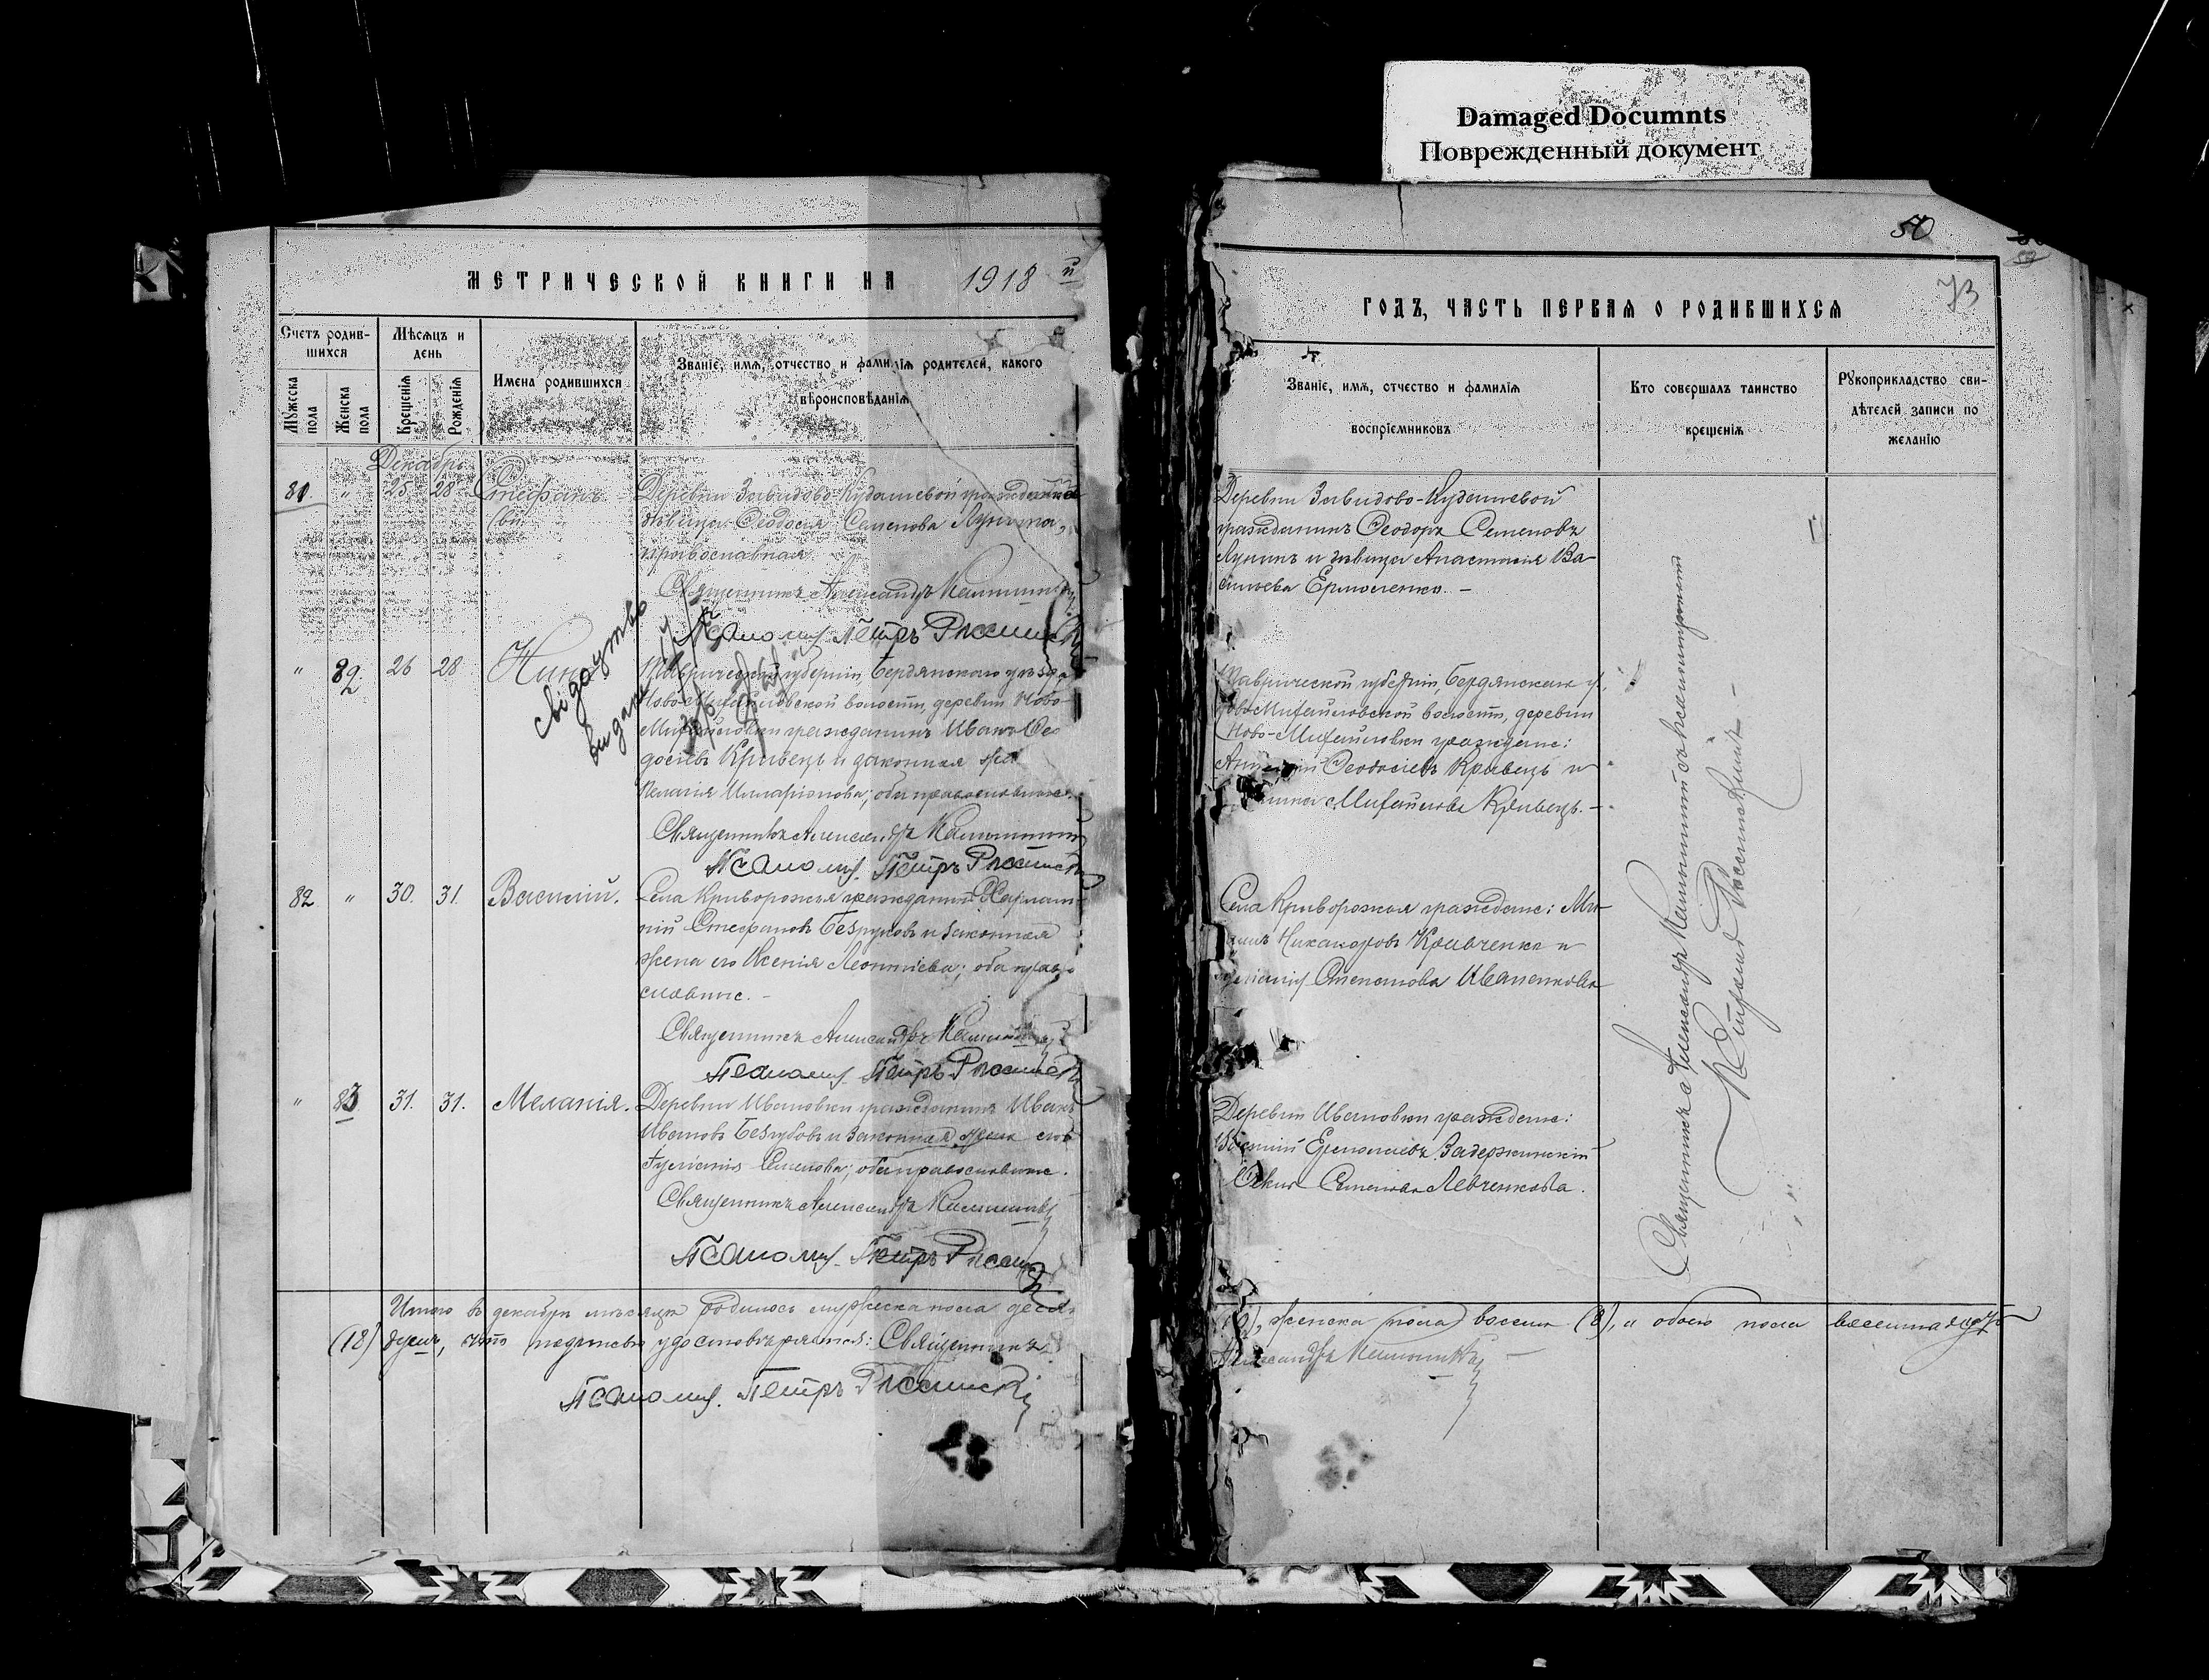 Damaged Documnts
Поврежденный документ
50
73
МЕТРИЧЕСКОЙ КНИГИ НА 1918 й
ГОДЪ, ЧАСТЬ ПЕРВАЯ О РОДИВШИХСЯ
Счетъ родив-
шихся
Мужеска
пола
Женска
пола
Мѣсяцъ и
день
Крещенія
Рожденія
Имена родившихся
Званіе, имя, отчество и фамилія родителей, какого
вѣроисповѣданія
Званіе, имя, отчество и фамилія
воспріемниковъ
Кто совершалъ таинство
крещенія
Рукоприкладство сви-
дѣтелей записи по
желанію
Декабрь
81. " 25 28 Стефанъ
Деревни Завидово-Кудашевой гражданка
дѣвица Ѳеодосія Семенова Лунина,
православная.
Священникъ Александръ
Псаломщ. Петръ
Деревни Завидово-Кудашевой
гражданинъ Ѳеодоръ Семеновъ
Лунинъ и дѣвица Анастасія Ва-
сильева Ермоленко. -
свідоцтво
видане
" 82. 26 28 Нина
Таврической губерніи, Бердянскаго уѣзда,
Ново-Михайловской волости, деревни Ново-
Михайловки гражданинъ Иванъ Ѳео
досіевъ Кривецъ и законная жена
Пелагія Илларіонова; оба православные.
Священникъ Александръ
Псаломщ. Петръ
Таврической губерніи, Бердянскаго у.
Ново-Михайловской волости, деревни
Ново-Михайловки граждане:
Ѳеодосіевъ Кривецъ и
Михайлова Кривецъ. -
82 " 30. 31. Василій.
Села Криворожья гражданинъ Харлам-
пій Стефановъ Безруковъ и законная
жена его Ксенія Леонтіева; оба право
славные. -
Священникъ Александръ
Псаломщ. Петръ
Села Криворожья граждане:
Никаноровъ Кравченко и
Степанова Иваненкова
" 83 31. 31. Меланія.
Деревни Ивановки гражданинъ Иванъ
Ивановъ Беззубовъ и законная жена его
Іуліанія Семенова; оба православные.
Священникъ Александръ
Псаломщ. Петръ
Деревни Ивановки граждане:
Василій Ермолаевъ
Семенова Левченкова.
Священникъ Александръ съ псаломщикомъ
Петромъ
Итого въ декабрѣ мѣсяцѣ родилось мужеска пола деся
(10), женска пола восемь (8), и обоего пола восемнадцать
(18) душъ, что подписью удостовѣряется: Священникъ
Александръ
Псаломщ. Петръ